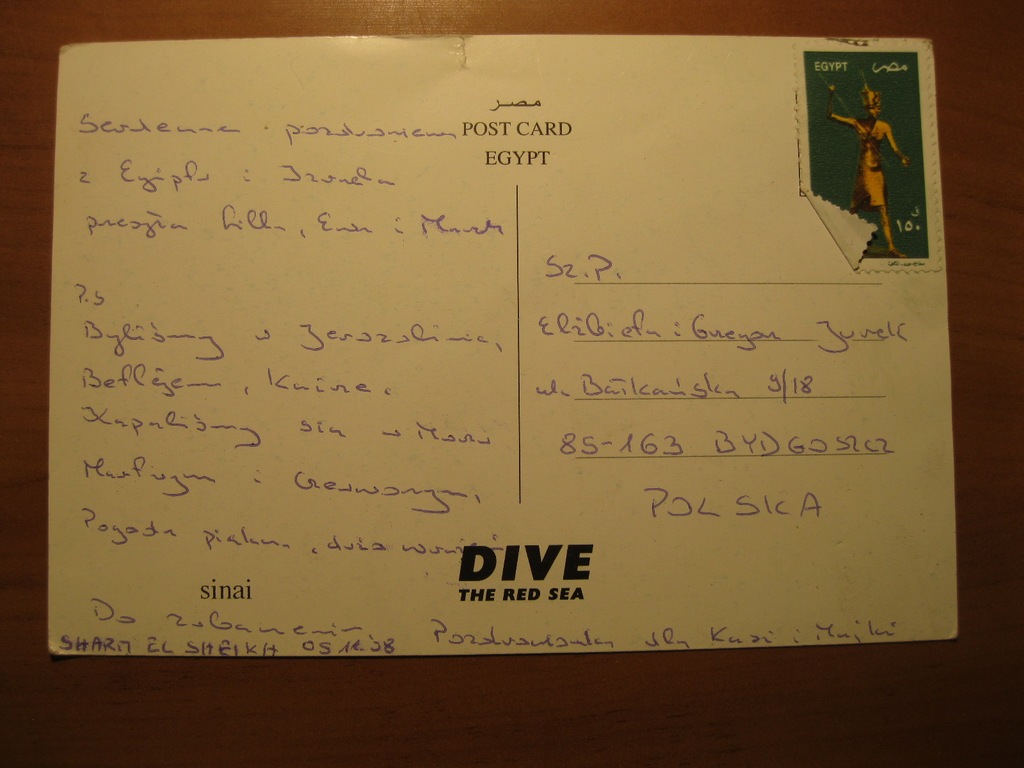 مصر
POST CARD
EGYPT
EGYPT مصر
١٥٠
Serdeczne pozdrowienia
z Egiptu i Izraela
Ewa i Marek
P.S
Byliśmy w Jerozolimie,
Betlejem, Kairze.
Kąpaliśmy się w Morzu
Martwym i Czerwonym,
Pogoda piękna, dużo wrażeń
Do zobaczenia
Pozdrowionka dla Kasi i Majki
SHARM EL SHEIKH
Sz.P.
Elżbieta i Jurek
ul. Bałkańska 9/18
85-163 BYDGOSZCZ
POLSKA
sinai
DIVE
THE RED SEA